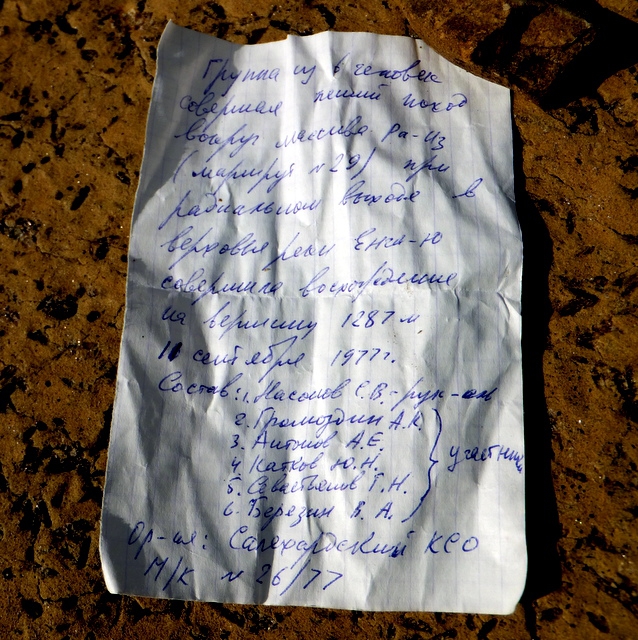 Группа из 6 человек
совершая пеший поход
вокруг массива Ра-Из
(маршрут №29) при
радиальном выходе в
верховье реки Енга-ю
совершила восхождение
на вершину 1287 м,
11 сентября 1977г.
Состав: 1. Насонов С.В. - рук-ль
2. Громоздин А.К.
3. Антонов А.Е.
4. Катков Ю.Н. участники
5. Севастьянов Г.Н.
6. Березин В. А.
Ор-ия: Салехардский КСО
М/К №26/77